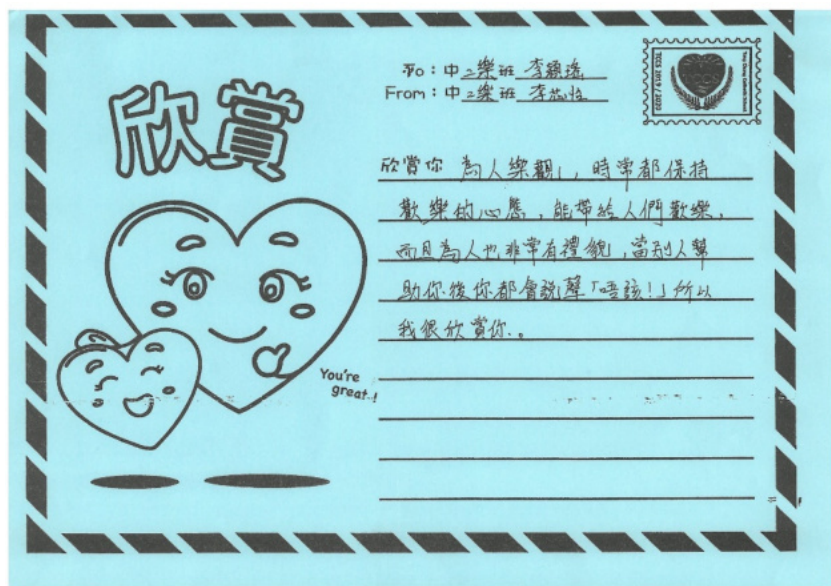 欣賞
To：中二樂班 李穎瑤
From：中二樂班 李芯怡
欣賞你 為人樂觀，時常都保持
歡樂的心態，能帶給人們歡樂，
而且為人也非常有禮貌，當別人幫
助你後你都會說聲「唔該！」所以
我很欣賞你。
You're
great..!